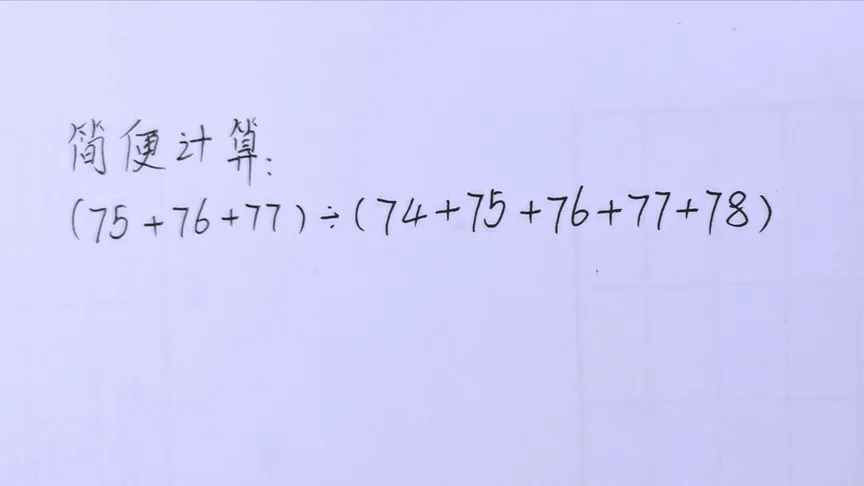 简便计算:
(75+76+77)÷(74+75+76+77+78)